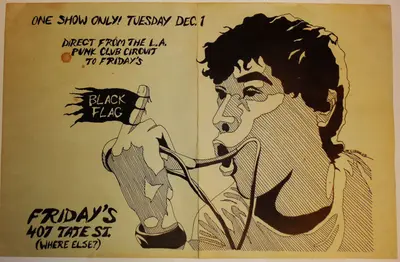 ONE SHOW ONLY! TUESDAY DEC. 1
DIRECT FROM THE L.A.
PUNK CLUB CIRCUIT
TO FRIDAY'S
BLACK
FLAG
FRIDAY'S
407 TATE ST.
(WHERE ELSE?)